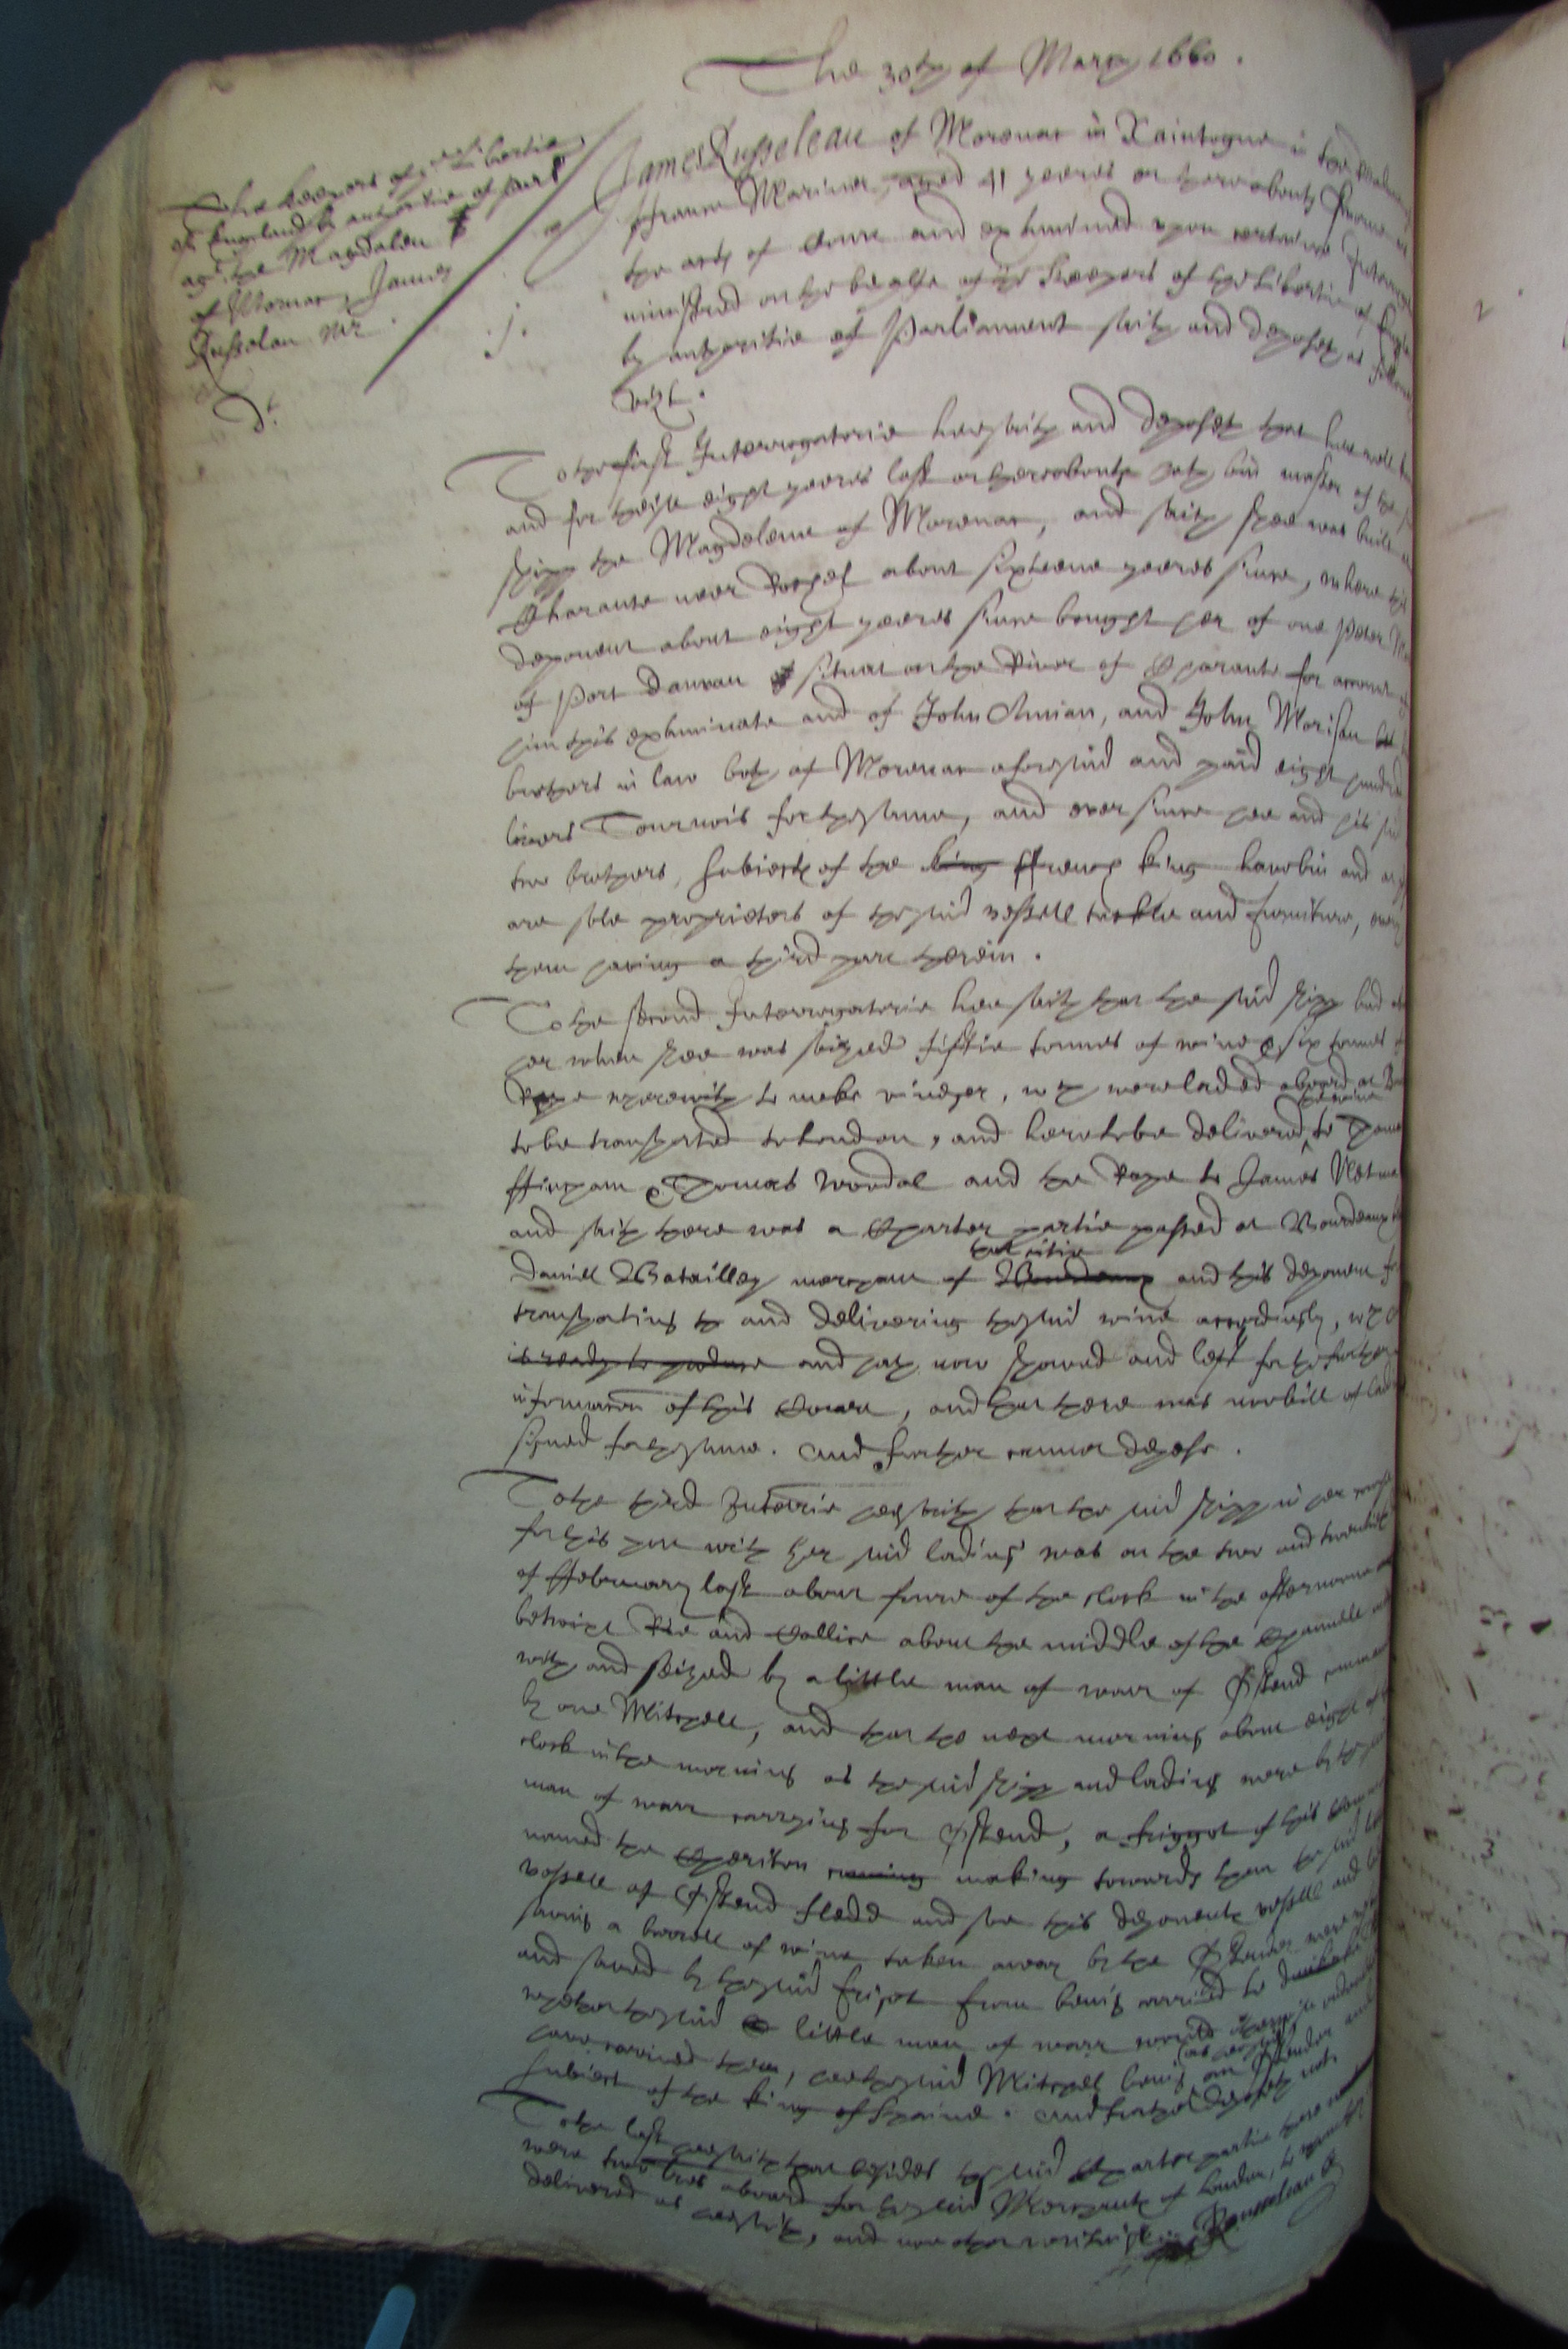 The 30th of March 1660.
The keepers of the libertie
of England by authoritie of parl
agt. the Magdalen
of Mornac, James
Russelau mr
dt.
James Russeleau of Morenac in Xaintogne in
ffrance Mariner, aged 41 yeeres or thereabouts sworne
the acts of Court and examined upon certaine Interr
ministred on the behalfe of the Keepers of the libertie of Engla
by authoritie of Parliament saith and deposeth as followeth
vizt.
j.
To the first Interrogatorie hee saith and deposeth that hee well
and for theise eight yeeres last or thereabouts hath bin master of the
shipp the Magdelene of Morenac, and saith shee was built
Charante neer Rochel about sixteene yeeres since, where this
deponent about eight yeeres since bought her of one Peter
of Port Danvau situat on the River of Charante for account
him this examinate and of John Amian, and John Morisan
brothers in law both of Morenac aforesaid and paid eight hundred
livers Tournois for the same, and ever since hee and his said
two brothers, subiects of the king ffrench king have bin and
are sole proprietors of the said vessell tackle and furniture, every
them having a third part therein.
To the second Interrogatorie hee saith that the said shipp had
her when shee was seized fiftie tonnes of wine & six tonnes
Rape wherewith to make vineger, wch were laded aboard at
to be transported to London, and here to be delivered the wine to Thomas
ffincham & Thomas Woodal and the Rape to James
and saith there was a Charter partie passed at Bourdeaux
Daniell Batailley merchant of Bourdeaux that citie and this deponent for
transporting th and delivering the said wine accordingly, wch
is ready to produce and hath now shewed and left for the further
information of this Court, and that there was noe bill of lading
signed for the same. And further cannot depose.
To the third Interrie hee saith that the said shipp in her
for this port with her said lading was on the two and twentieth
of ffebruary last about foure of the clock in the afternoone
betwixt Rie and Callice about the middle of the Channell
with and seized by a little man of warr of Ostend
by one Mitchell, and that the next morning about eight of
clock in the morning as the said shipp and lading were by the
man of warr carrying for Ostend, a friggot of this
named the Cheriton coming making towards them the said
vessell of Ostend fledd and soe this deponents vessell and
saving a barrell of wine taken away by the Ostender were
and saved by the said frigot from being carried to
whether the said little man of warr would
have carried them, hee the said Mitchel being (as hee saith) an Ostender and
subiect of the king of Spaine. And further deposeth not.
To the last hee saith that besides the said Charter partie there
were two lres aboard for the said Merchants of London,
delivered as hee saith, and noe other writings
Rousseleau